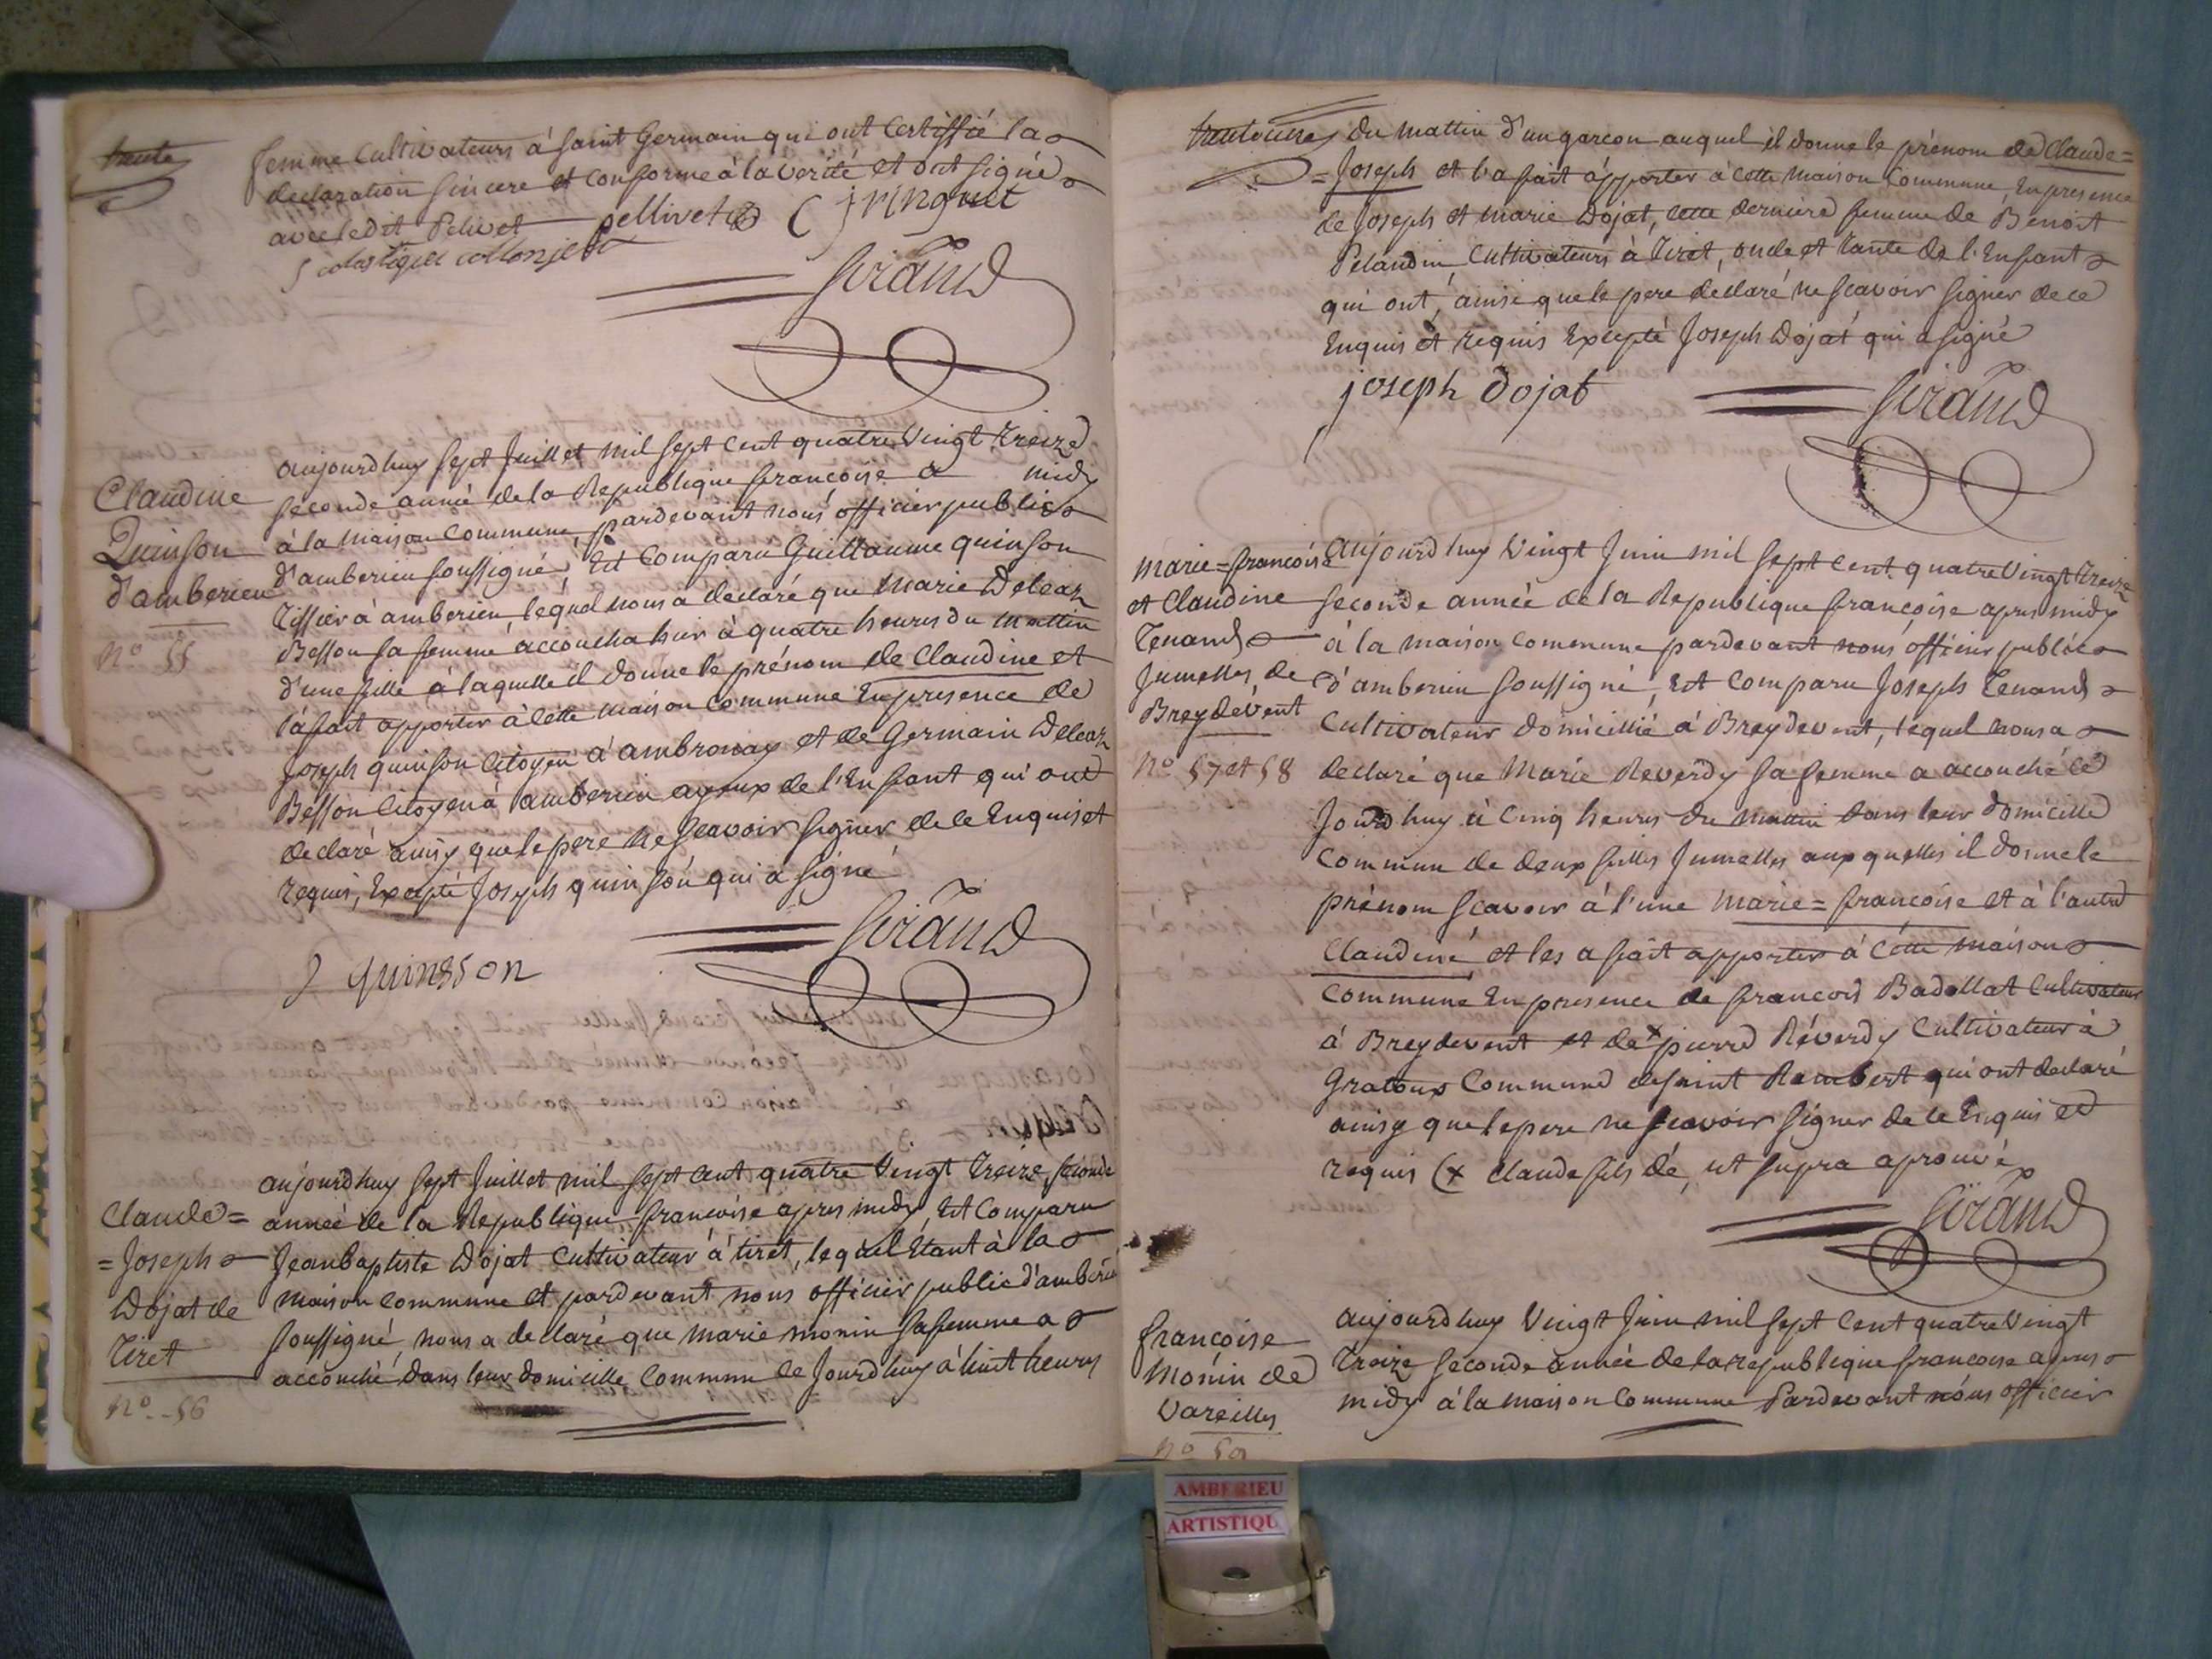 trente
femme Cultivateurs à Saint Germain qui ont Certiffié la
declaration sincere et conforme à la verité et ont signé
avec ledit Pelivet pellivet C jringuet
scolastique collonjeat
Giraud
Claudine
Quinson
d'amberieu
N° 55
aujourd huy sept Juillet mil sept cent quatre Vingt Treize
seconde année de la Republique françoise à midy
à la maison commune, pardevant nous officier public
d'amberieu soussigné, Est Comparu Guillaume quinson
Tissier à amberieu, lequel nous a declaré que Marie Deleaz
Besson sa femme accoucha hier à quatre heures du mattin
d'une fille à laquelle il donne le prénom de Claudine et
l'a fait apporter à cette maison Commune En presence de
Joseph quinson Citoyen d'ambronay et de Germain Deleaz
Besson Citoyen à amberieu ayeux de l'Enfant qui ont
declaré ainsy que le pere ne sçavoir signer de ce Enquis et
requis, Excepté Joseph quinson qui a signé
J quinsson
Giraud
Claude=
=Joseph
Dojat de
Tiret
N° 56
aujourd huy sept Juillet mil sept cent quatre Vingt Treize, seconde
année de la Republique françoise apres midy, Est Comparu
Jean baptiste Dojat Cultivateur à tiret, lequel Etant à la
maison commune et pardevant nous officier public d'amberieu
soussigné, nous a declaré que marie monin sa femme a
accouché dans leur domicille Commun ce Jourd huy à huit heures
trente une
du mattin d'un garcon auquel il donne le prénom de Claude=
=Joseph et l'a fait apporter à cette maison Commune En presence
de Joseph et marie Dojat, cette derniere femme de Benoit
Pelandin Cultivateurs à Tiret, oncle et Tante de l'Enfant
qui ont, ainsi que le pere declaré ne sçavoir signer de ce
Enquis et requis Excepté Joseph Dojat qui a signé
joseph dojat
Giraud
marie=françoise
et Claudine
Tenand
Jumelles de
Breydevent
N° 57 et 58
aujourd huy Vingt Juin mil sept Cent quatre Vingt Treize
seconde année de la Republique françoise apres midy
à la maison commune pardevant nous officier public
d'amberieu soussigné, Est comparu Joseph Tenand
Cultivateur domicillié à Breydevent, lequel nous a
declaré que Marie Reverdy sa femme a accouché ce
Jourd huy à Cinq heures du mattin dans leur domicille
Commun de deux filles Jumelles aux quelles il donne le
prénom sçavoir à l'une marie=françoise et à l'autre
Claudine et les a fait apporter à cette maison
Commune En presence de francois Badollat Cultivateur
à Breydevent et de x pierre Réverdy Cultivateur à
Gratoux Commune de saint Rambert qui ont declaré
ainsy que le pere ne sçavoir signer de ce Enquis et
requis (x Claude fils de, ut supra aprouvé
Giraud
francoise
Monin de
Vareilles
N° 59
aujourd huy Vingt Juin mil sept Cent quatre Vingt
Treize seconde année de la republique francoise apres
midy à la maison Commune Pardevant nous officier
AMBERIEU
ARTISTIQU